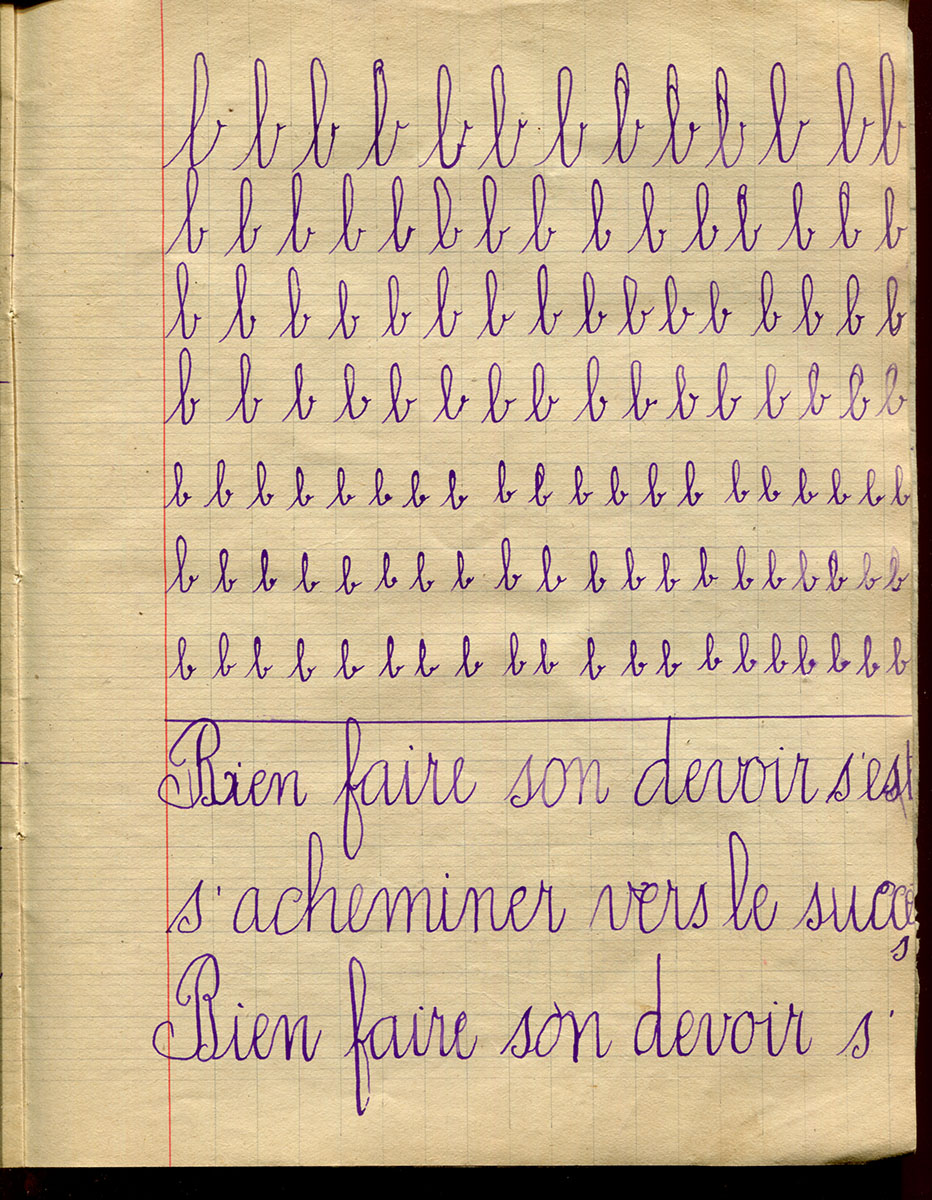 b b b b b b b b b b b b b
b b b b b b b b b b b b b b b
b b b b b b b b b b b b b b b b
b b b b b b b b b b b b b b b b
b b b b b b b b b b b b b b b b b b b b
b b b b b b b b b b b b b b b b b b b b
b b b b b b b b b b b b b b b b b b b b
Bien faire son devoir s'est
s'acheminer vers le succè
s
Bien faire son devoir s'